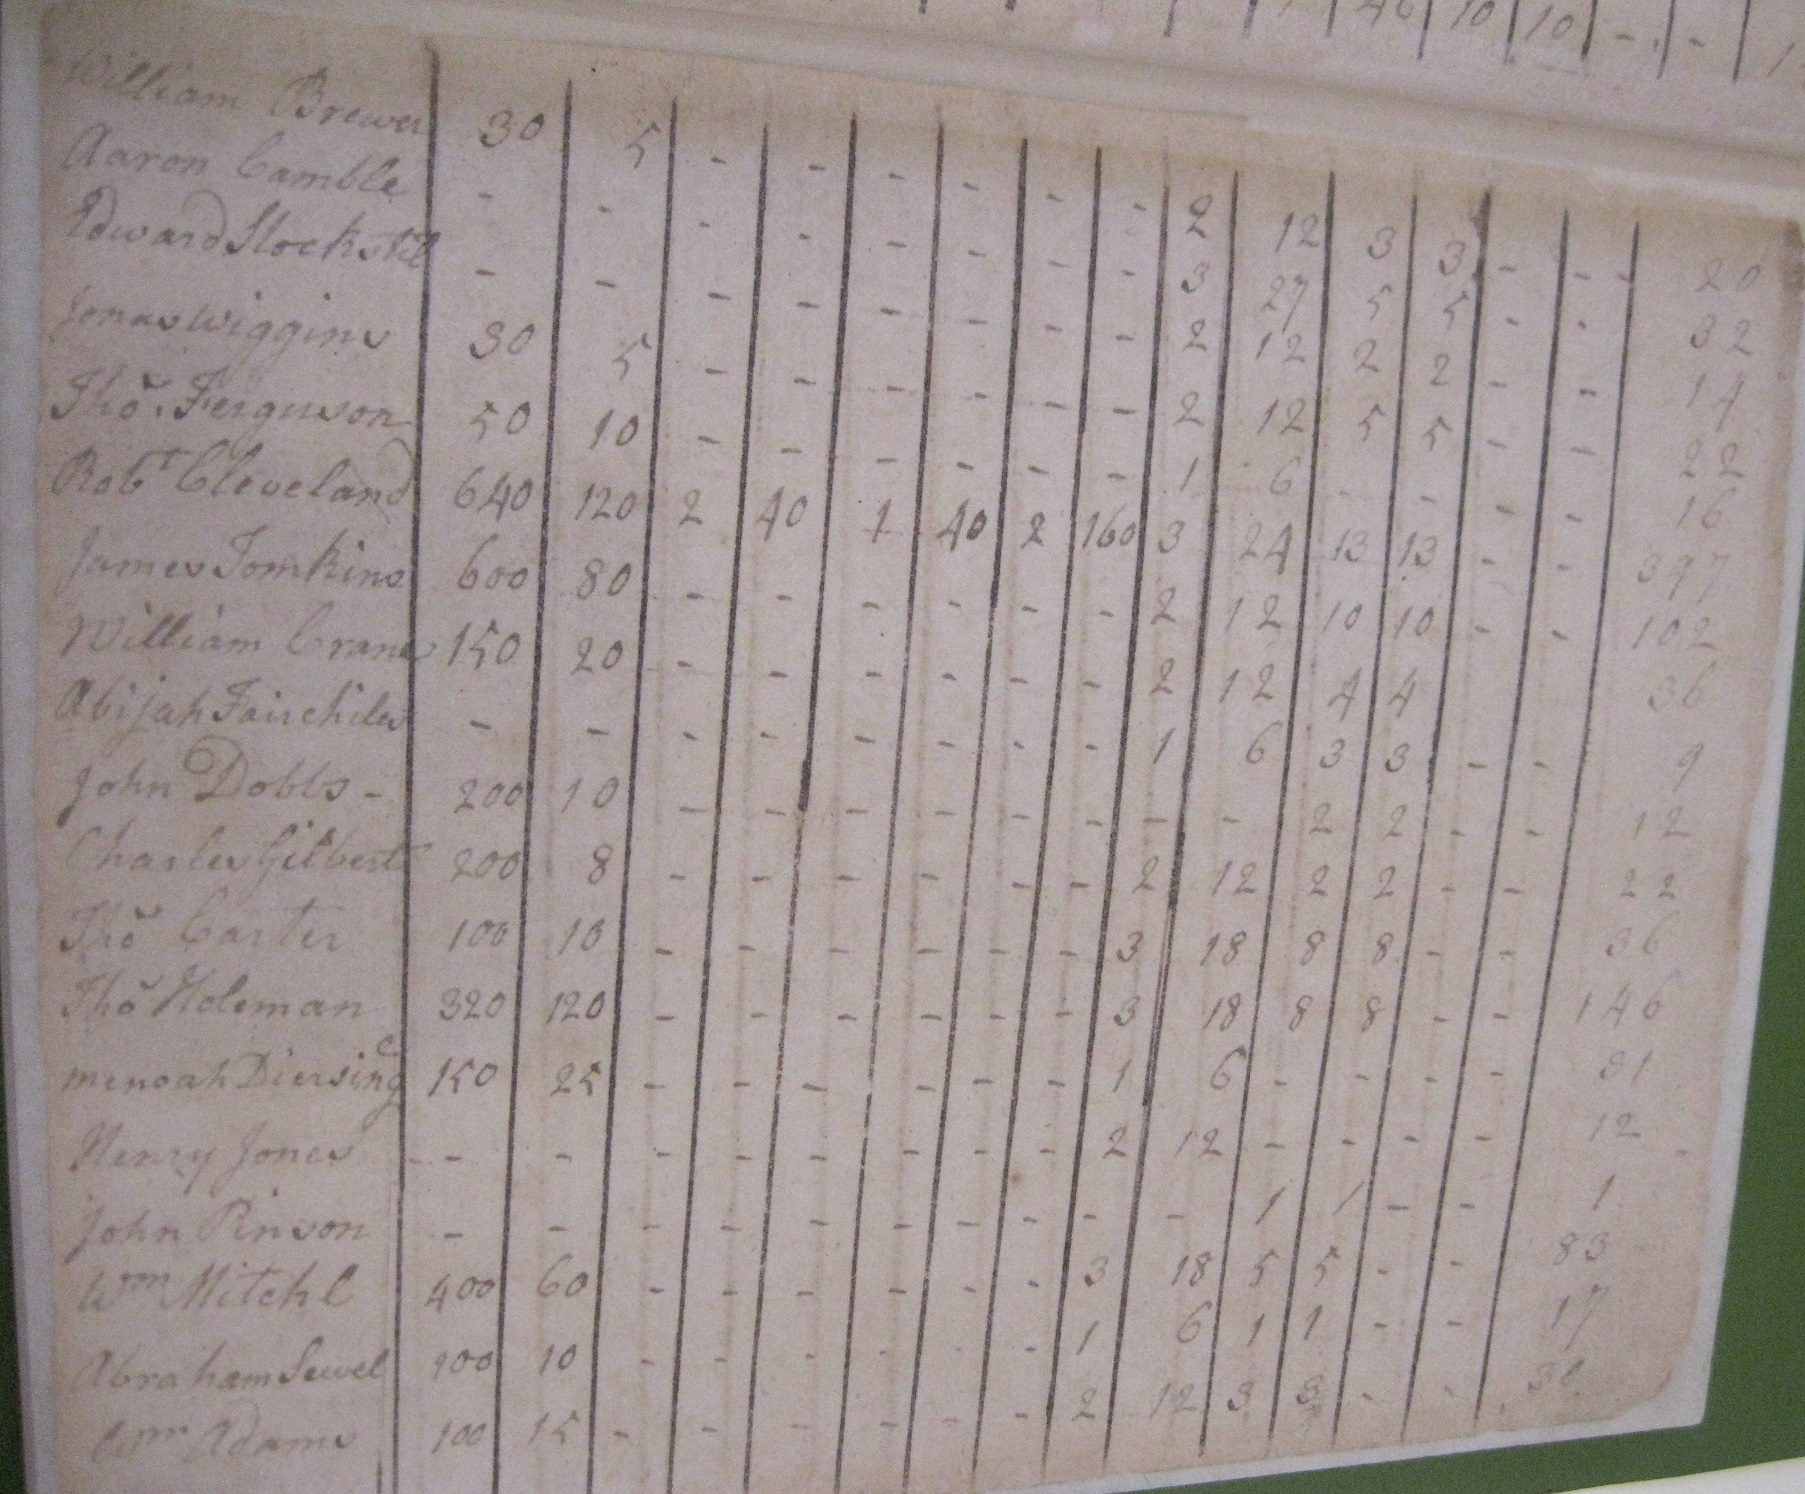 46 10 10 - -
William Brewer 30 5 - - - - - - 2 12 3 3 - - 20
Aaron Camble - - - - - - - - 3 27 5 5 - - 32
Edward Stockstil - - - - - - - - 2 12 2 2 - - 14
Jonas Wiggins 30 5 - - - - - - 2 12 5 5 - - 22
Tho. Ferguson 50 10 - - - - - - 1 6 - - - - 16
Robt Cleveland 640 120 2 40 1 40 2 160 3 24 13 13 - - 397
James Tomkins 600 80 - - - - - - 2 12 10 10 - - 102
William Crane 150 20 - - - - - - 2 12 4 4 36
Abijah Fairchiles - - - - - - - - 1 6 3 3 - - 9
John Dobbs - 200 10 - - - - - - - - 2 2 - - 12
Charles Gilbert 200 8 - - - - - - 2 12 2 2 - - 22
Tho Carter 100 10 - - - - - - 3 18 8 8 - - 36
Tho Holeman 320 120 - - - - - - 3 18 8 8 - - 146
Menoah Diersing 150 25 - - - - - - 1 6 - - - - 31
Henry Jones - - - - - - - - 2 12 - - - - 12
John Pinson - - - - - - - - - - 1 1 - - 1
Wm Mitchl 400 60 - - - - - - 3 18 5 5 - - 83
Abraham Sewel 100 10 - - - - - - 1 6 1 1 - - 17
Wm Adams 100 15 - - - - - - 2 12 3 3 - -